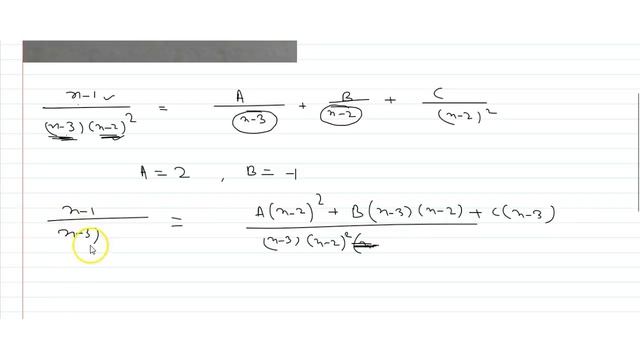 x-1 / (x-3)(x-2)² = A / x-3 + B / x-2 + C / (x-2)²
A = 2 , B = -1
x-1 / x-3) = A(x-2)² + B(x-3)(x-2) + C(x-3) / (x-3)(x-2)²